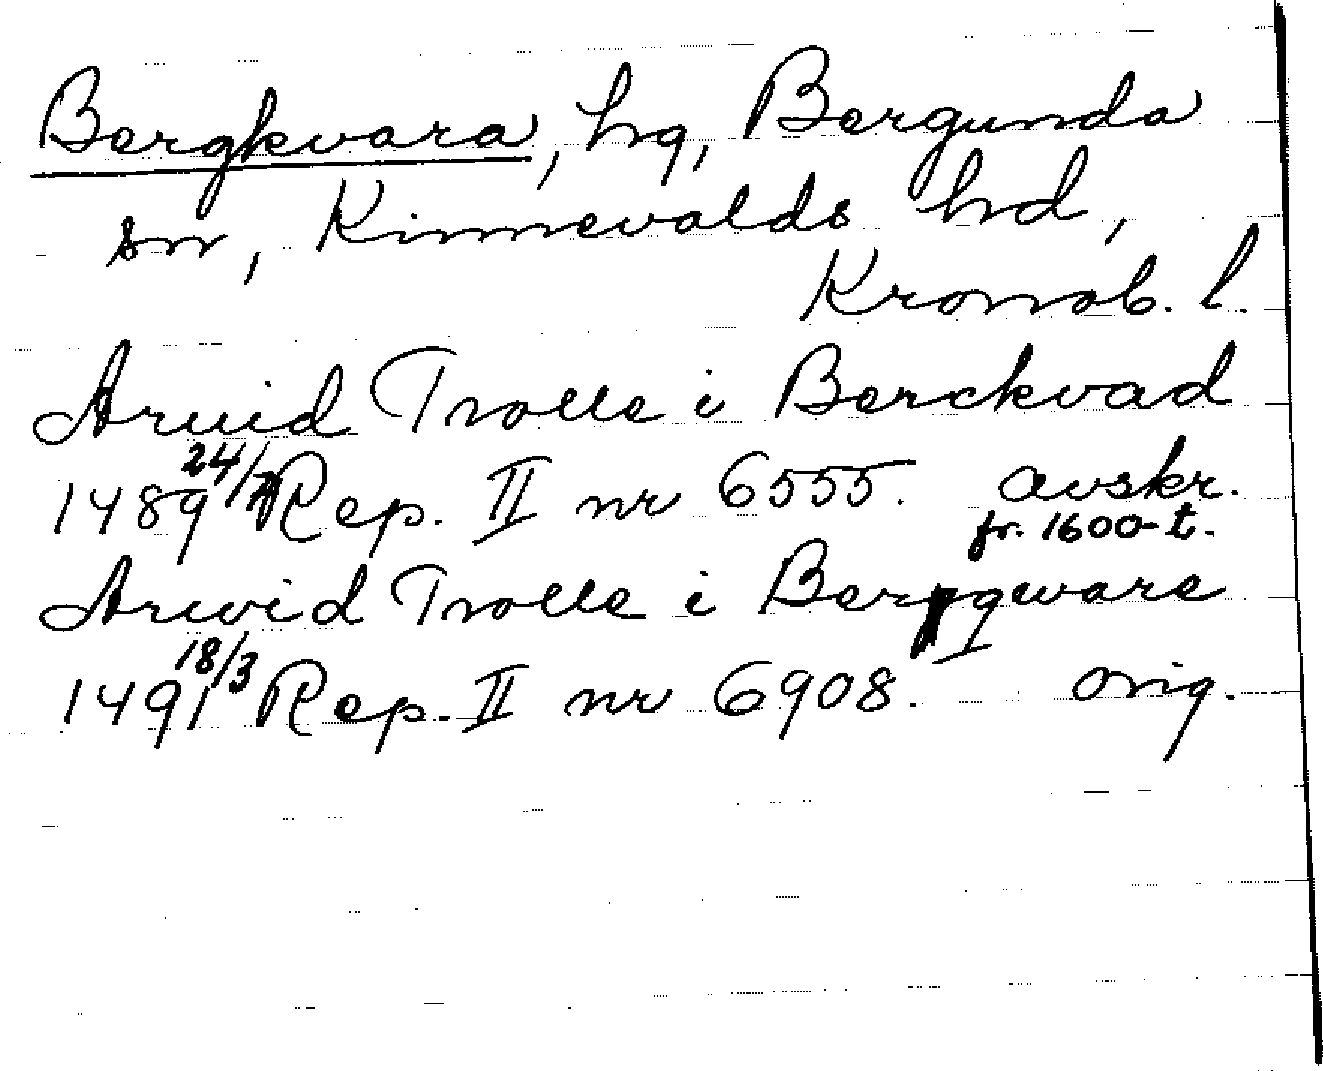 Bergkvara, hg, Bergunda
sn, Kinnevalds hd,
Kronob. l.
Arvid Trolle i Berckvad
1489 24/7 Rep. II nr 6555. avskr.
fr. 1600-t.
Arvid Trolle i Bergqware
1491 18/3 Rep. II nr 6908. orig.